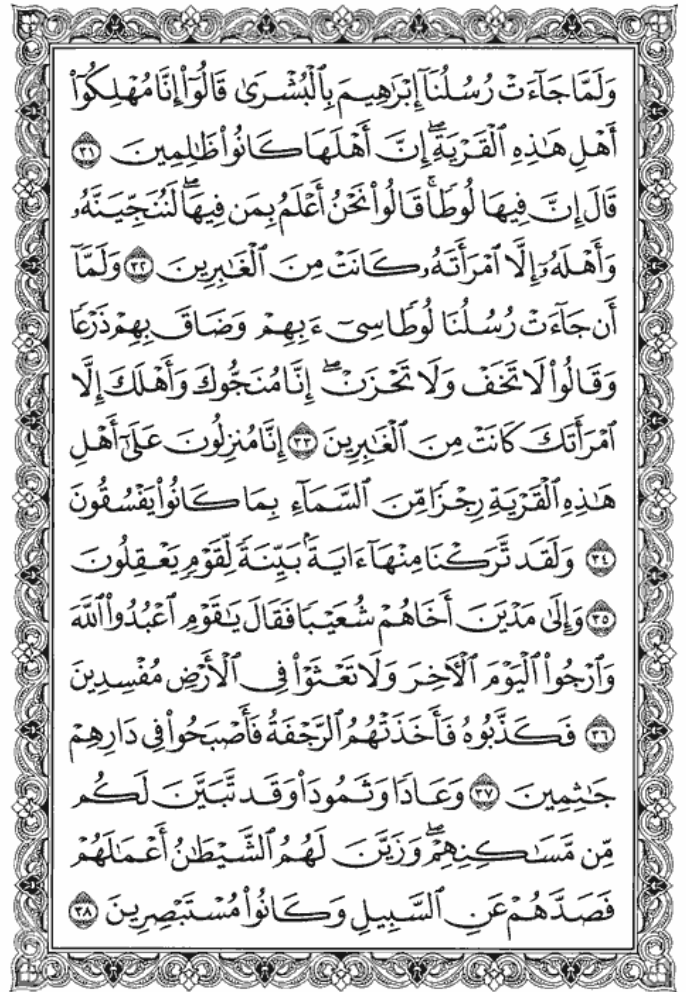 وَلَمَّا جَآءَتْ رُسُلُنَآ إِبْرَٰهِيمَ بِٱلْبُشْرَىٰ قَالُوٓا۟ إِنَّا مُهْلِكُوٓا۟
أَهْلِ هَٰذِهِ ٱلْقَرْيَةِ ۖ إِنَّ أَهْلَهَا كَانُوا۟ ظَٰلِمِينَ ٣١
قَالَ إِنَّ فِيهَا لُوطًا ۚ قَالُوا۟ نَحْنُ أَعْلَمُ بِمَن فِيهَا ۖ لَنُنَجِّيَنَّهُۥ
وَأَهْلَهُۥٓ إِلَّا ٱمْرَأَتَهُۥ كَانَتْ مِنَ ٱلْغَٰبِرِينَ ٣٢ وَلَمَّآ
أَن جَآءَتْ رُسُلُنَا لُوطًا سِىٓءَ بِهِمْ وَضَاقَ بِهِمْ ذَرْعًا
وَقَالُوا۟ لَا تَخَفْ وَلَا تَحْزَنْ ۖ إِنَّا مُنَجُّوكَ وَأَهْلَكَ إِلَّا
ٱمْرَأَتَكَ كَانَتْ مِنَ ٱلْغَٰبِرِينَ ٣٣ إِنَّا مُنزِلُونَ عَلَىٰٓ أَهْلِ
هَٰذِهِ ٱلْقَرْيَةِ رِجْزًا مِّنَ ٱلسَّمَآءِ بِمَا كَانُوا۟ يَفْسُقُونَ
٣٤ وَلَقَد تَّرَكْنَا مِنْهَآ ءَايَةًۢ بَيِّنَةً لِّقَوْمٍ يَعْقِلُونَ
٣٥ وَإِلَىٰ مَدْيَنَ أَخَاهُمْ شُعَيْبًا فَقَالَ يَٰقَوْمِ ٱعْبُدُوا۟ ٱللَّهَ
وَٱرْجُوا۟ ٱلْيَوْمَ ٱلْءَاخِرَ وَلَا تَعْثَوْا۟ فِى ٱلْأَرْضِ مُفْسِدِينَ
٣٦ فَكَذَّبُوهُ فَأَخَذَتْهُمُ ٱلرَّجْفَةُ فَأَصْبَحُوا۟ فِى دَارِهِمْ
جَٰثِمِينَ ٣٧ وَعَادًا وَثَمُودَا۟ وَقَد تَّبَيَّنَ لَكُم
مِّن مَّسَٰكِنِهِمْ ۖ وَزَيَّنَ لَهُمُ ٱلشَّيْطَٰنُ أَعْمَٰلَهُمْ
فَصَدَّهُمْ عَنِ ٱلسَّبِيلِ وَكَانُوا۟ مُسْتَبْصِرِينَ ٣٨